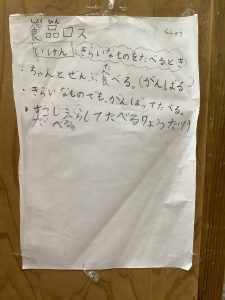 しょくひん
食品ロス
れんしゅう
じけん きらいなものをたべるとき
た
・ちゃんとぜんぶ食べる。(がんばる
・きらいなものでも、がんばってたべる。
・してたべるりょうだけ
たべる。